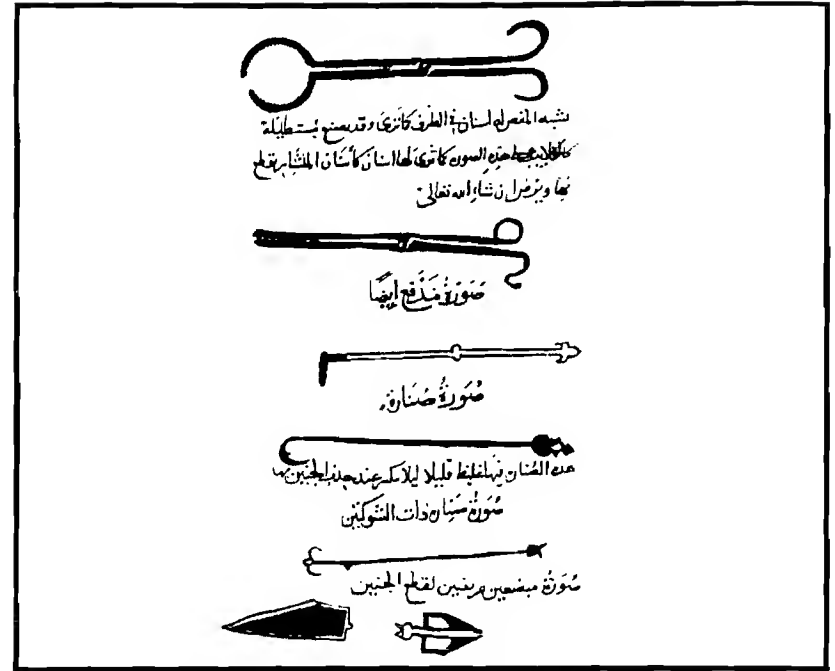 تشبه المقص لها اسنان في الطرف كما ترى وقد يصنع مستطيلة
كالكلاليب على هذه الصورة كما ترى لها اسنان كأسنان المنشار يقطع
بها ويرض ان شاء الله تعالى
صُورَةُ مِدْفع أيضًا
صُورَةُ صنارة
هذه الصنارة فيها غلظ قليلا ليلا تنكسر عند جذب الجنين بها
صُورَةُ صنارة ذات الشوكتين
صُورَةُ مبضعين عريضين لقطع الجنين